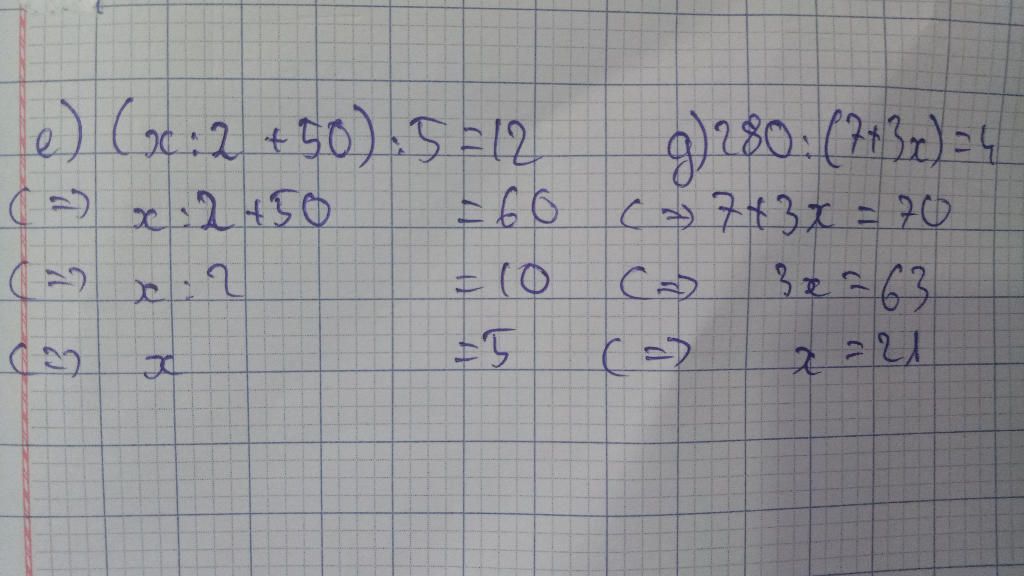 e) (x:2 +50):5 =12
(=) x:2+50 =60
(=) x:2 =10
(=) x =5
g) 280:(7+3x)=4
(=) 7+3x=70
(=) 3x=63
(=) x=21